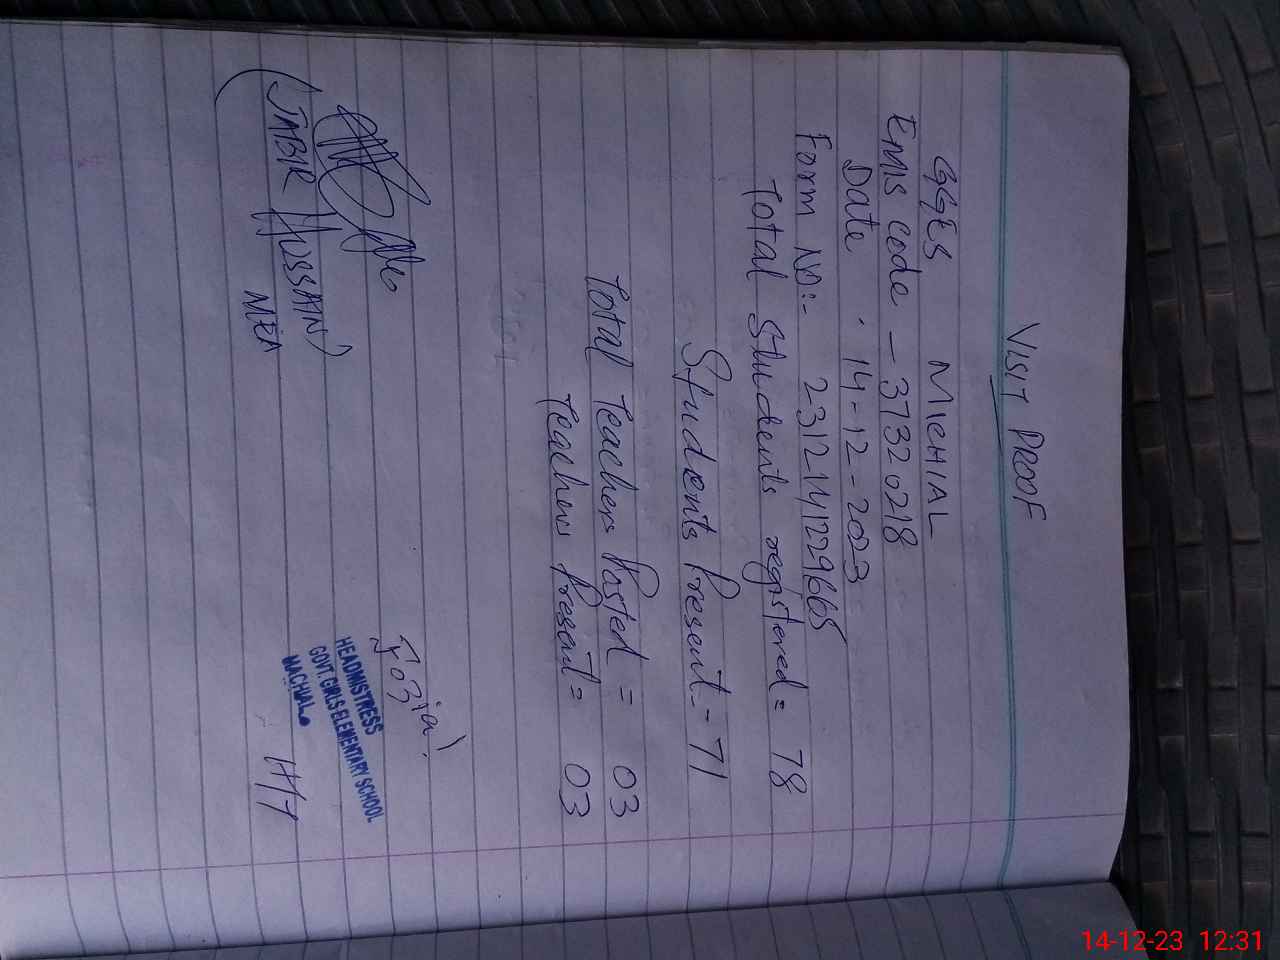 VISIT PROOF
GGES MICHIAL
EMIS code - 37320218
Date . 14-12-2023
Form NO:- 2312141229665
Total Students registered = 78
Students Present - 71
Total Teachers Posted = 03
Teachers Present = 03
(JABIR HUSSAIN)
MEA
Fozia
HEADMISTRESS
GOVT. GIRLS ELEMENTARY SCHOOL
MACHIAL
H/T
14-12-23 12:31